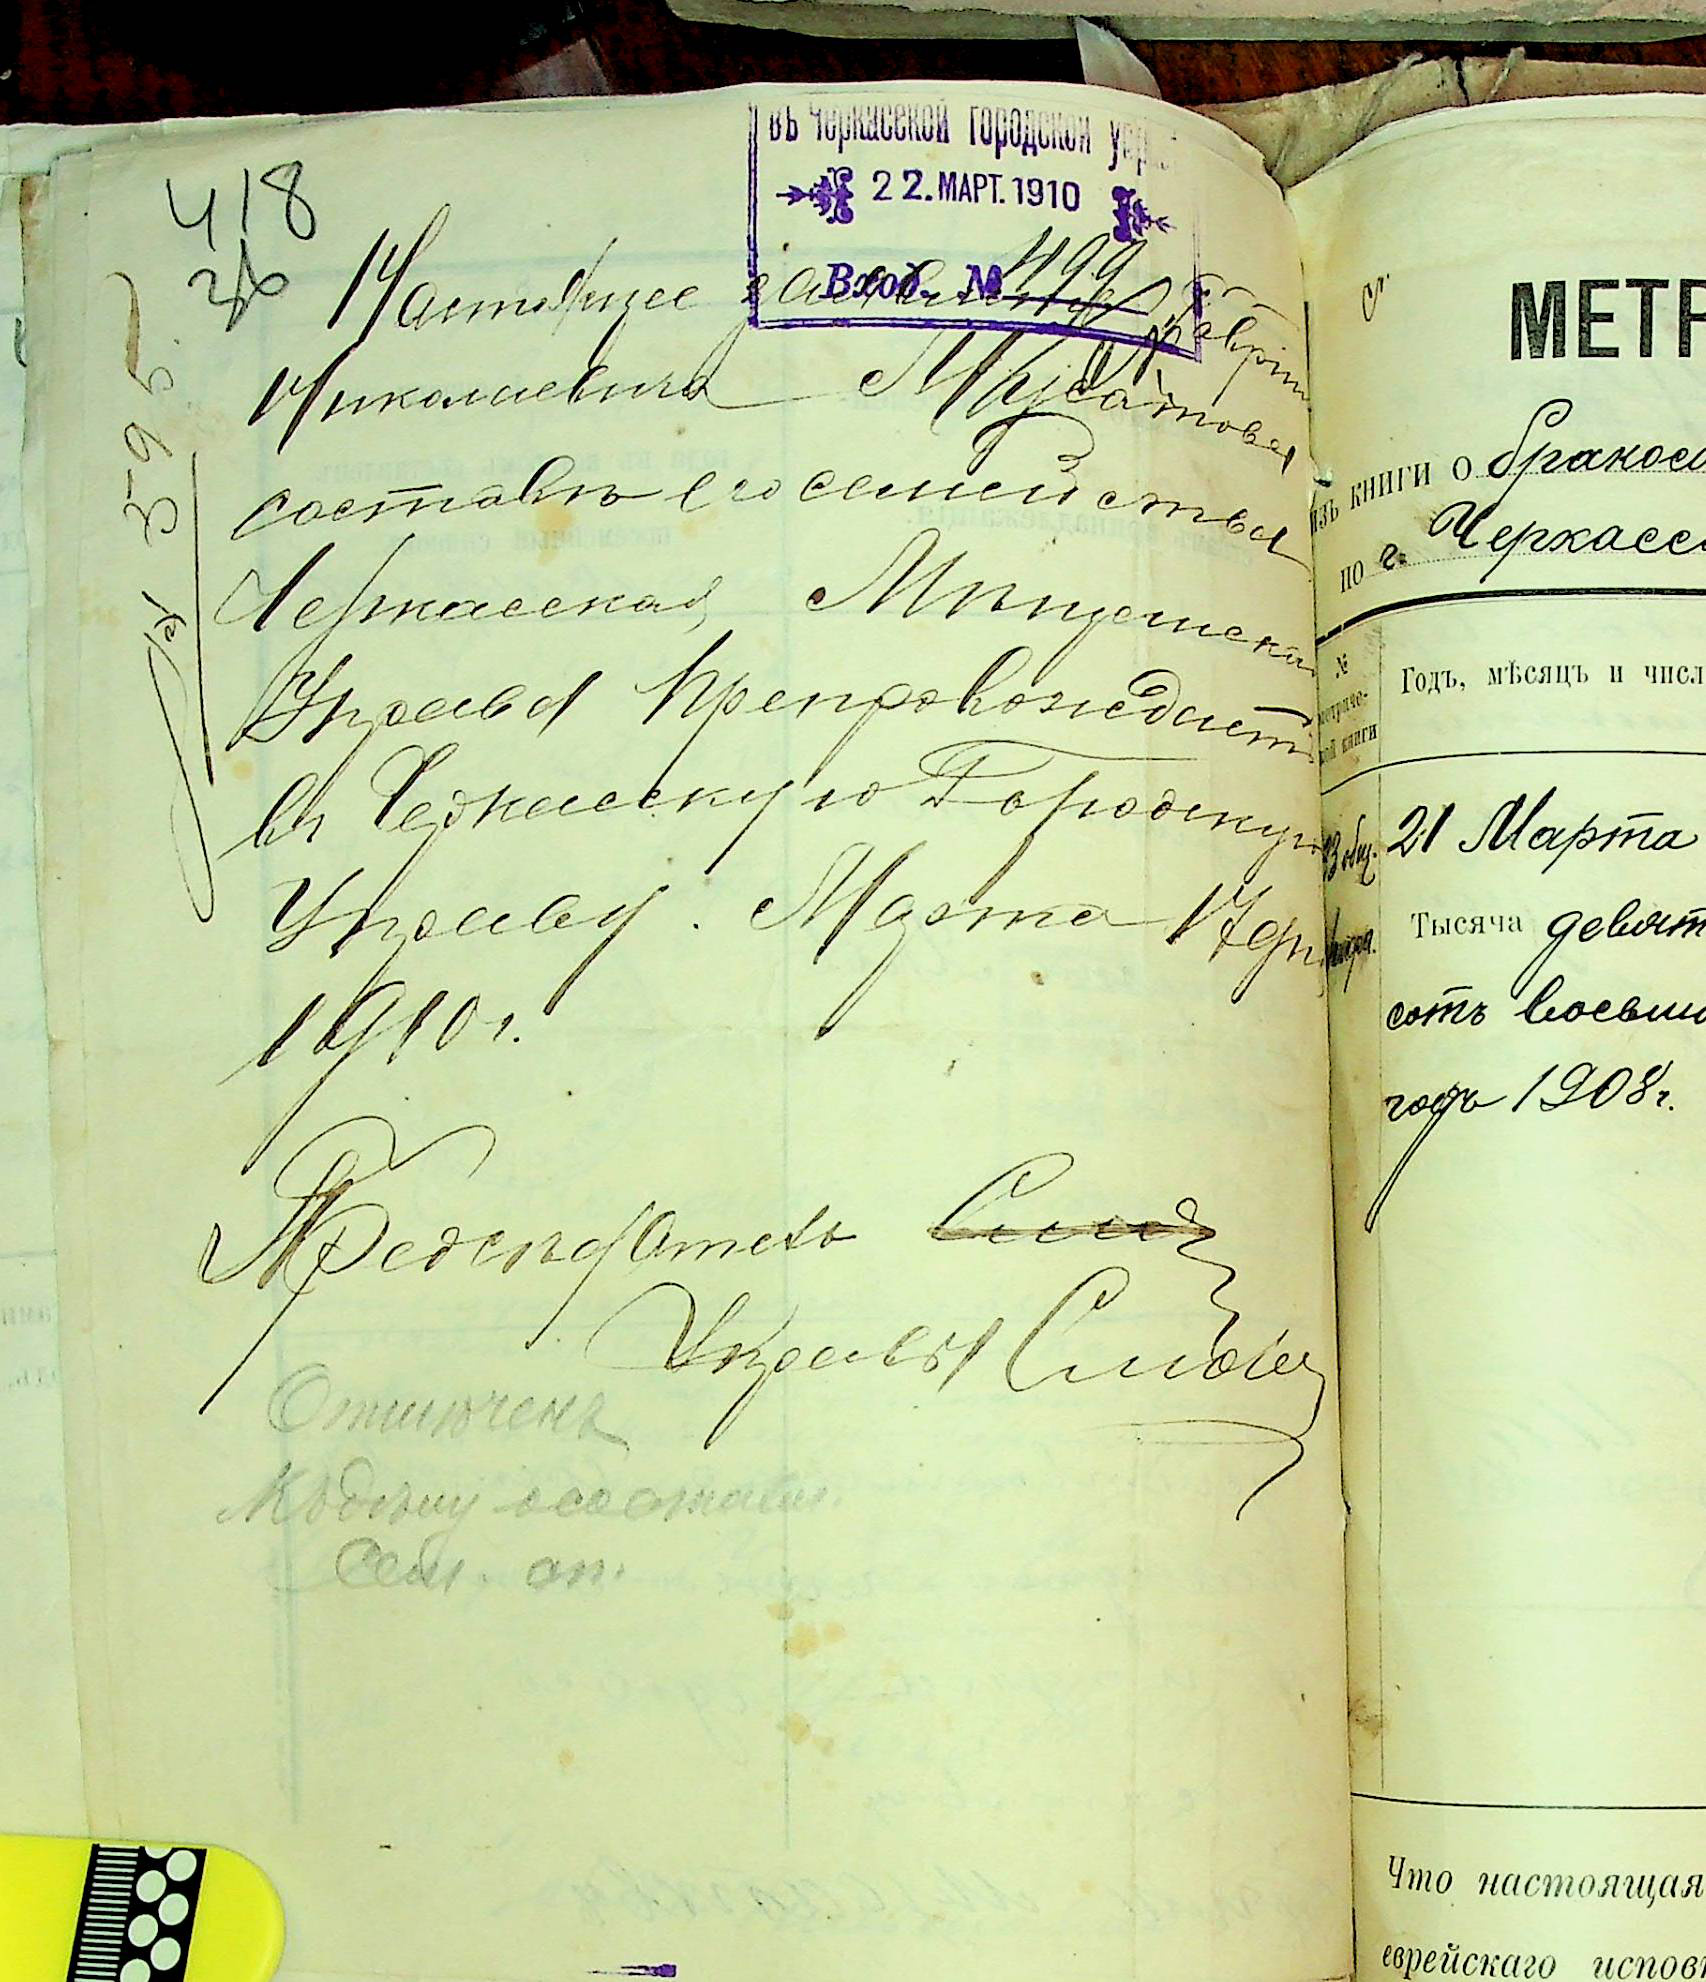 въ Черкасской городской упр
22. МАРТ. 1910
Вход. № 499
418
36
№ 595
Настоящее заявленіе Гавріи
Николаевича
составѣ его семейства
Черкасская Мѣщанская
Управа препровождаетъ
въ Черкасскую Городскую
Управу. Марта 17 дня
1910 г.
Предсѣдатель
Управы
Къ дѣлу о составл.
Сем. сп.
МЕТР
изъ книги о бракосо
по г. Черкасс
№
метриче-
ской книги
Годъ, мѣсяцъ и числ
21 Марта
Тысяча девят
сотъ восьмо
годъ 1908 г.
Что настоящая
еврейскаго испов